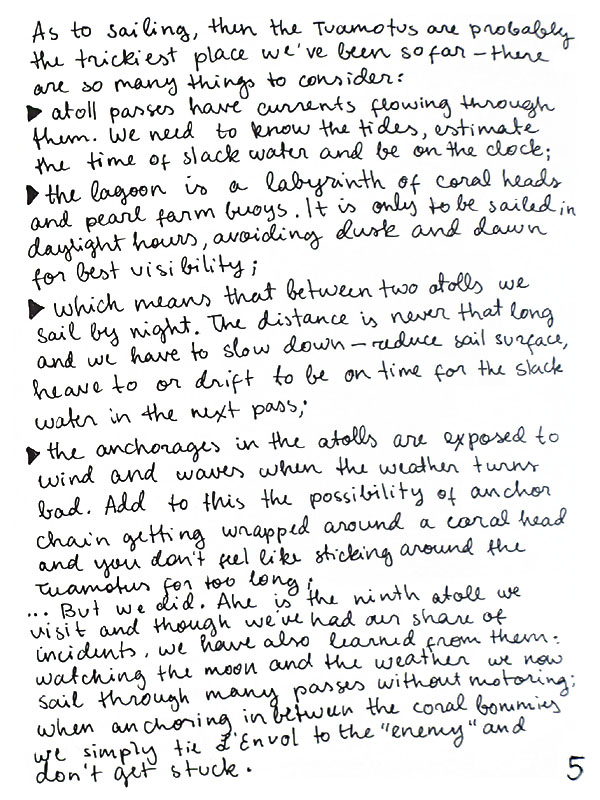 As to sailing, then the Tuamotus are probably
the trickiest place we've been so far – there
are so many things to consider:
▶ atoll passes have currents flowing through
them. We need to know the tides, estimate
the time of slack water and be on the clock;
▶ the lagoon is a labyrinth of coral heads
and pearl farm buoys. It is only to be sailed in
daylight hours, avoiding dusk and dawn
for best visibility;
▶ which means that between two atolls we
sail by night. The distance is never that long
and we have to slow down – reduce sail surface,
heave to or drift to be on time for the slack
water in the next pass;
▶ the anchorages in the atolls are exposed to
wind and waves when the weather turns
bad. Add to this the possibility of anchor
chain getting wrapped around a coral head
and you don't feel like sticking around the
Tuamotus for too long;
... But we did. Ahe is the ninth atoll we
visit and though we've had our share of
incidents, we have also learned from them:
watching the moon and the weather we now
sail through many passes without motoring;
when anchoring in between the coral bommies
we simply tie L'Envol to the "enemy" and
don't get stuck.
5